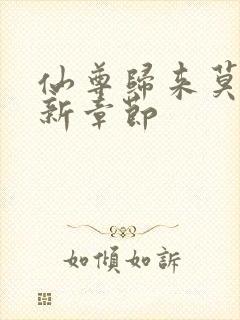 仙尊歸來莫
新章節
如傾如訴